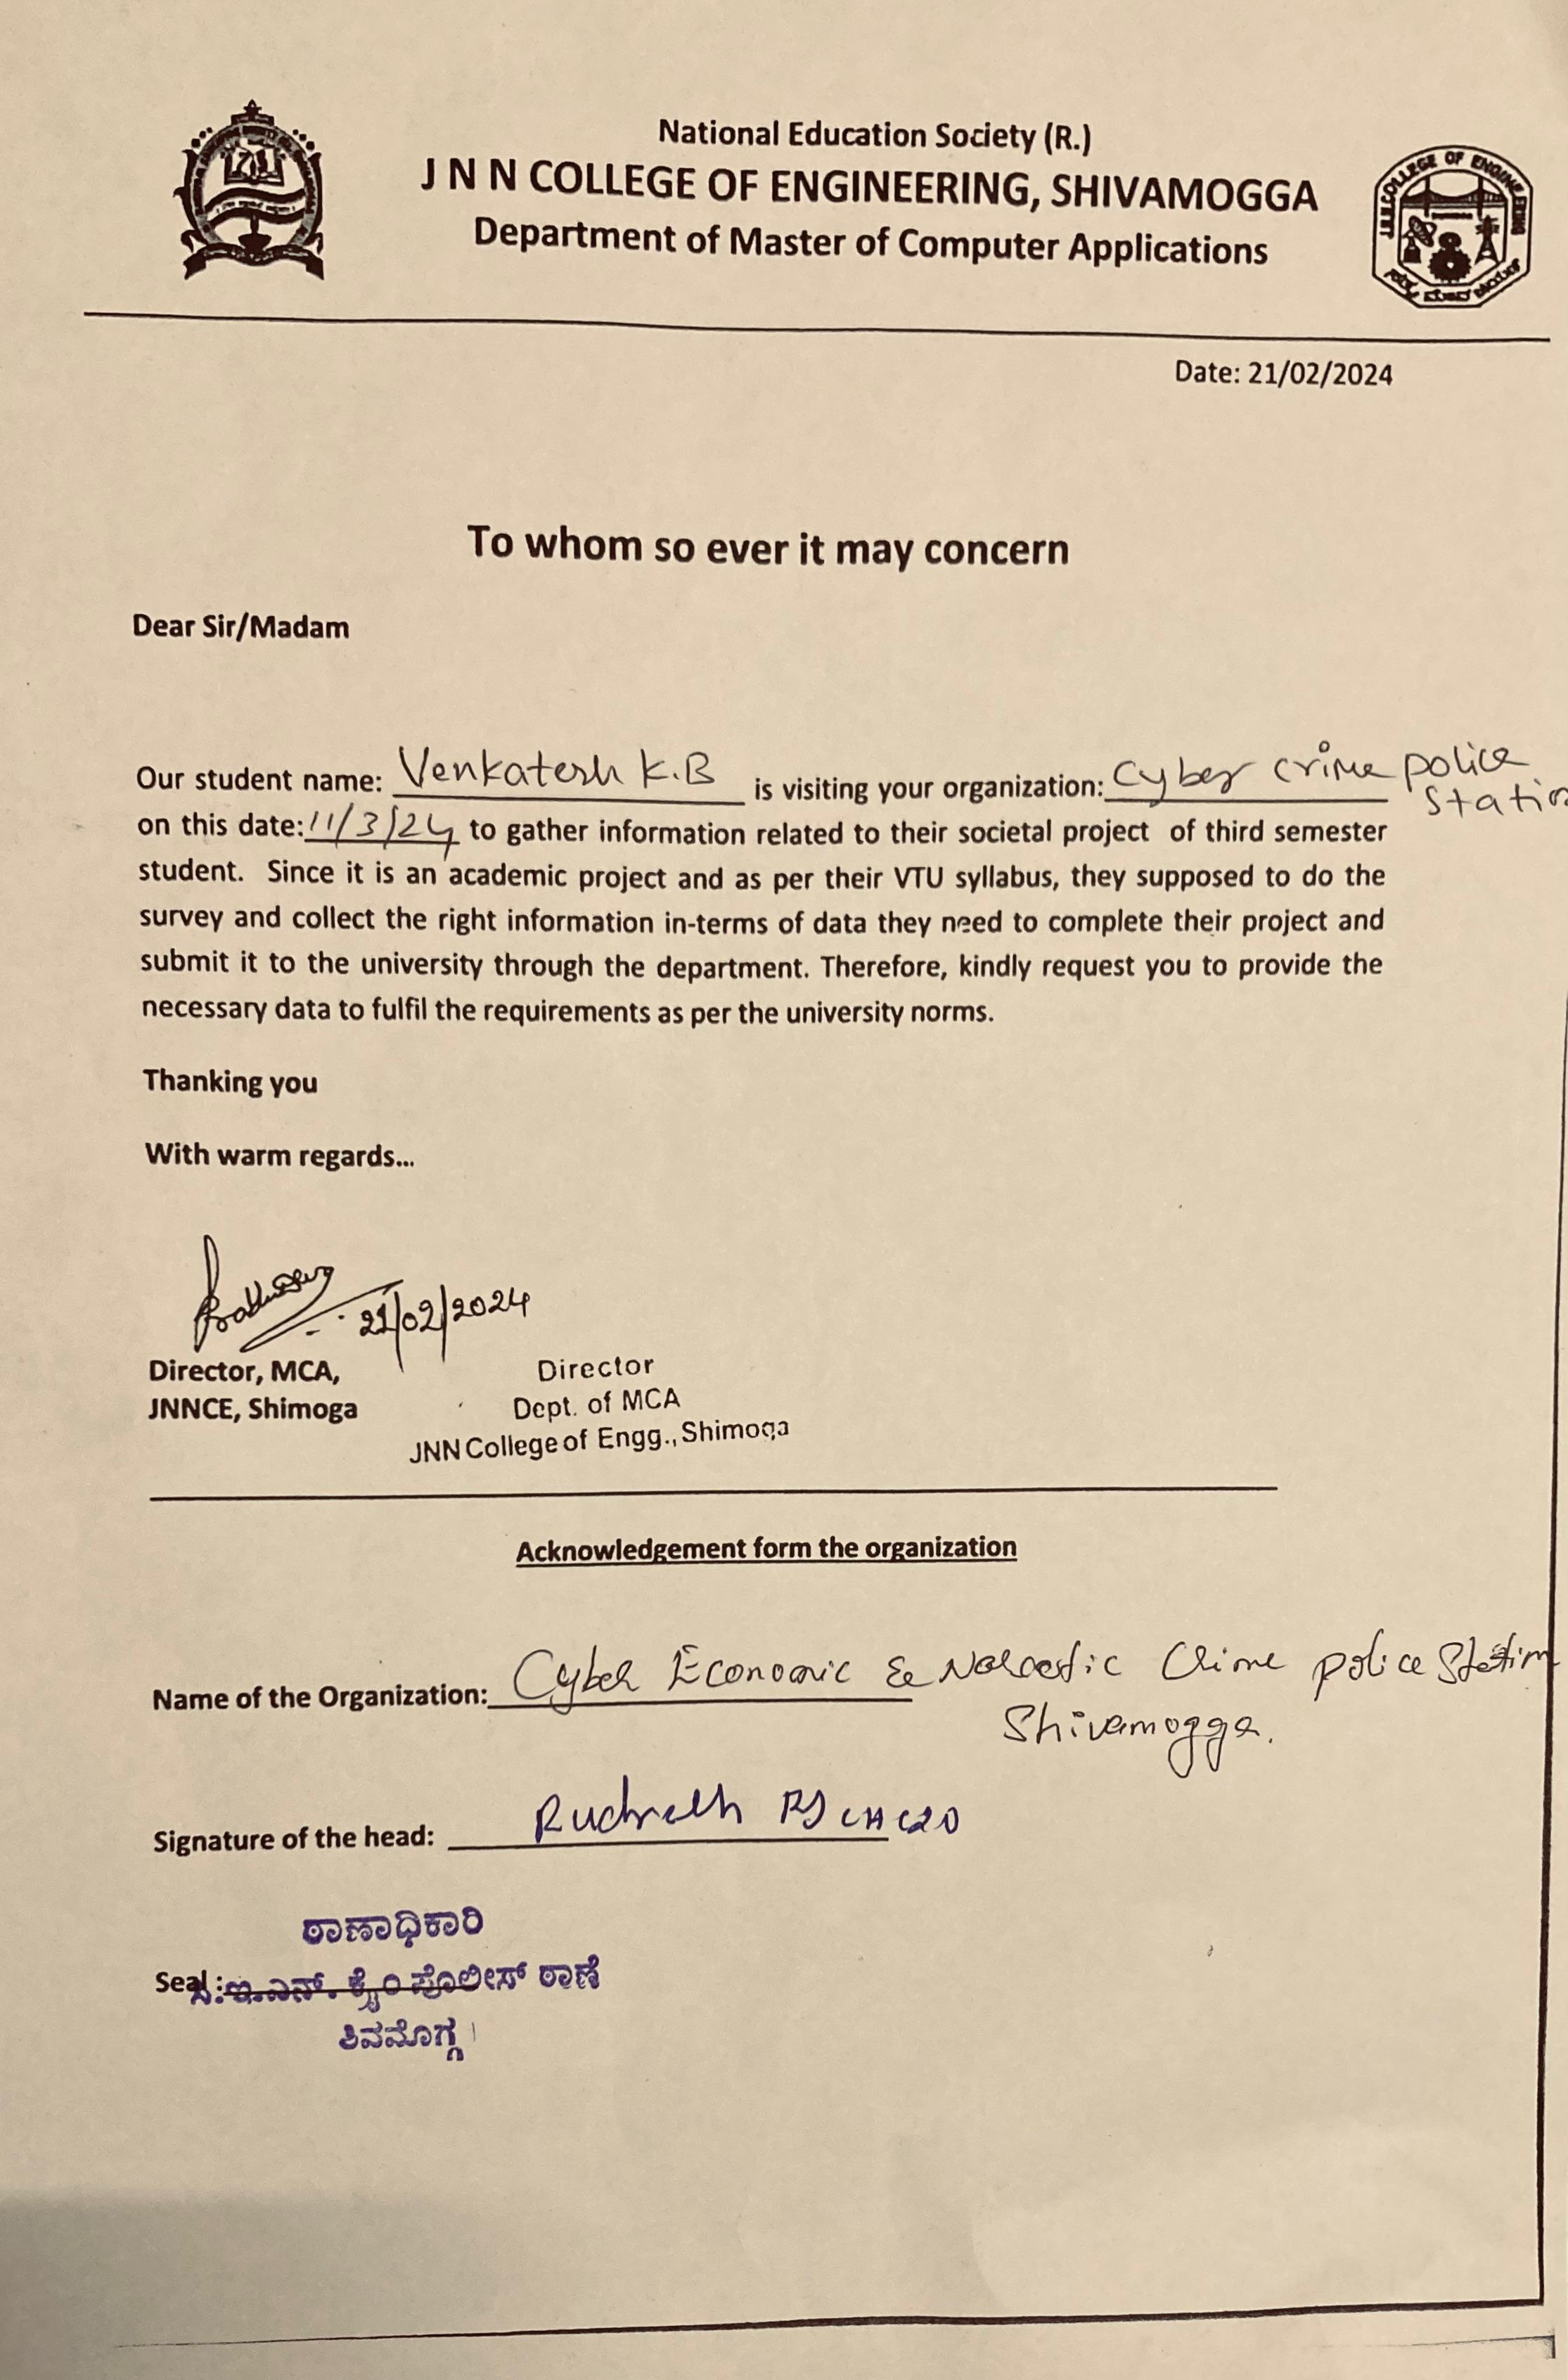 National Education Society (R.)
J N N COLLEGE OF ENGINEERING, SHIVAMOGGA
Department of Master of Computer Applications
COLLEGE OF ENGINEERING
Date: 21/02/2024
To whom so ever it may concern
Dear Sir/Madam
Our student name: Venkatesh K.B is visiting your organization: Cyber crime police
station
on this date: 11/3/24 to gather information related to their societal project of third semester
student. Since it is an academic project and as per their VTU syllabus, they supposed to do the
survey and collect the right information in-terms of data they need to complete their project and
submit it to the university through the department. Therefore, kindly request you to provide the
necessary data to fulfil the requirements as per the university norms.
Thanking you
With warm regards...
21/02/2024
Director, MCA,
JNNCE, Shimoga
Director
Dept. of MCA
JNN College of Engg., Shimoga
Acknowledgement form the organization
Name of the Organization: Cyber Economic & Narcotic Crime police Station
Shivamogga.
Signature of the head:
ಠಾಣಾಧಿಕಾರಿ
Seal : ಸಿ.ಇ.ಎನ್. ಕ್ರೈಂ ಪೊಲೀಸ್ ಠಾಣೆ
ಶಿವಮೊಗ್ಗ